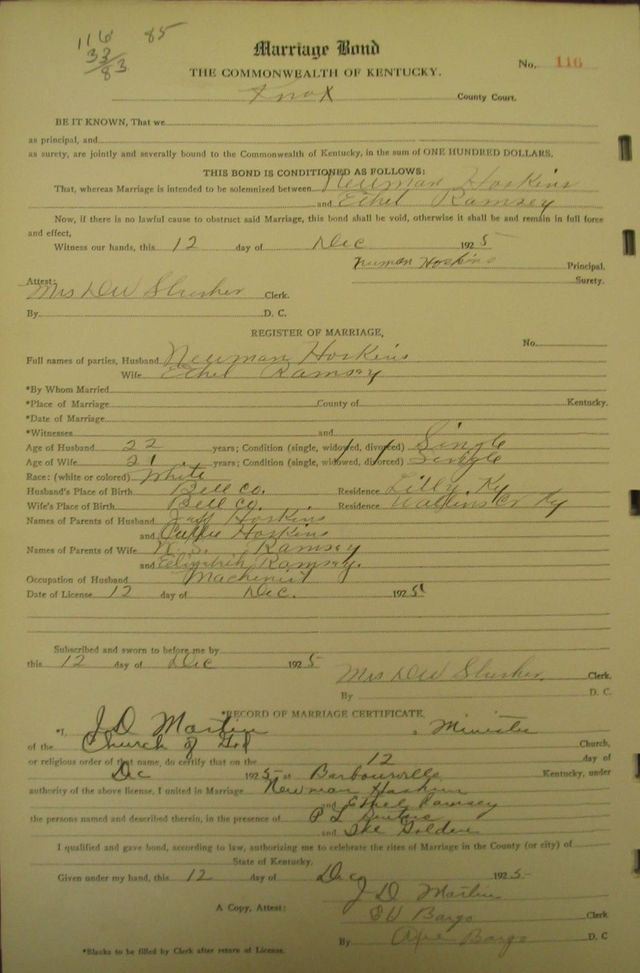 116 85
33
83
Marriage Bond
THE COMMONWEALTH OF KENTUCKY.
No. 116
Knox County Court.
BE IT KNOWN, That we
as principal, and
as surety, are jointly and severally bound to the Commonwealth of Kentucky, in the sum of ONE HUNDRED DOLLARS.
THIS BOND IS CONDITIONED AS FOLLOWS:
That, whereas Marriage is intended to be solemnized between Neuman Hoskins
and Ethel Ramsey
Now, if there is no lawful cause to obstruct said Marriage, this bond shall be void, otherwise it shall be and remain in full force
and effect,
Witness our hands, this 12 day of Dec 1925
Neuman Hoskins Principal.
Surety.
Attest:
Mrs DW Slusher Clerk.
By D. C.
REGISTER OF MARRIAGE,
No.
Full names of parties, Husband Neuman Hoskins
Wife Ethel Ramsey
*By Whom Married
*Place of Marriage County of Kentucky.
*Date of Marriage
*Witnesses and
Age of Husband 22 years; Condition (single, widowed, divorced) Single
Age of Wife 21 years; Condition (single, widowed, divorced) Single
Race: (white or colored) White
Husband's Place of Birth Bell Co. Residence Lilly, Ky
Wife's Place of Birth Bell Co. Residence Ky
Names of Parents of Husband Hoskins
and Hoskins
Names of Parents of Wife Ramsey
and Ramsey.
Occupation of Husband Machenist
Date of License 12 day of Dec. 1925
Subscribed and sworn to before me by
this 12 day of Dec 1925
Mrs DW Slusher, Clerk.
By D. C.
*RECORD OF MARRIAGE CERTIFICATE,
*I, J D Martin a Minister
of the Church of God Church,
or religious order of that name, do certify that on the 12 day of
Dec 1925 at Barbourville Kentucky, under
authority of the above license, I united in Marriage Newman Hoskins
and Ethel Ramsey
the persons named and described therein, in the presence of P L
and Ike Golden
I qualified and gave bond, according to law, authorizing me to celebrate the rites of Marriage in the County (or city) of
State of Kentucky.
Given under my hand, this 12 day of Dec 1925
J D Martin
A Copy, Attest: Bargo Clerk
By Bargo D. C
*Blanks to be filled by Clerk after return of License.